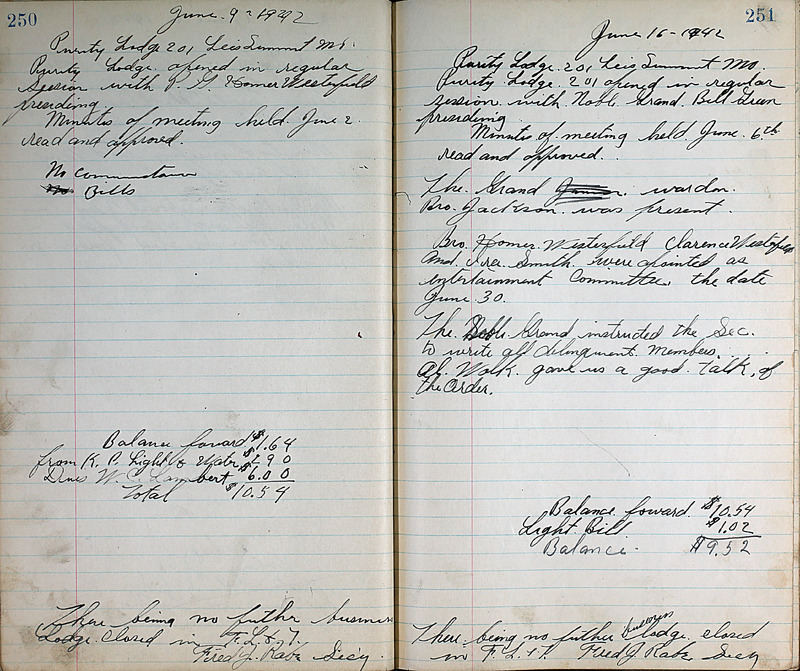 250
June 9 - 1942
Purity Lodge 201, Leis Summit Mo.
Purity Lodge opened in regular
session with P. G. Homer Westerfield
presiding
Minutes of meeting held June 2
read and approved.
No communication
No Bills
Balance foward $1.64
from K. P. Light & Water $2.90
Dues W. C. Lambert $6.00
Total $10.54
There being no futher business
Lodge closed in F. L. & T.
Fred J. Rabe Secy.
251
June 16 - 1942
Purity Lodge 201, Leis Summit Mo.
Purity Lodge 201 opened in regular
session with Noble Grand Bill Green
presiding
Minutes of meeting held June 6th
read and approved.
The Grand warden
Bro. Jackson was present.
Bro. Homer Westerfield Clarence Westerfield
and Ira Smith were apointed as
entertainment Committee, the date
June 30.
The Noble Grand instructed the Sec.
to write all delinquent members.
Al. Work gave us a good talk, of
the Order.
Balance foward $10.54
Light Bill $1.02
Balance $9.52
There being no futher business lodge closed
in F. L & T. Fred J. Rabe Secy